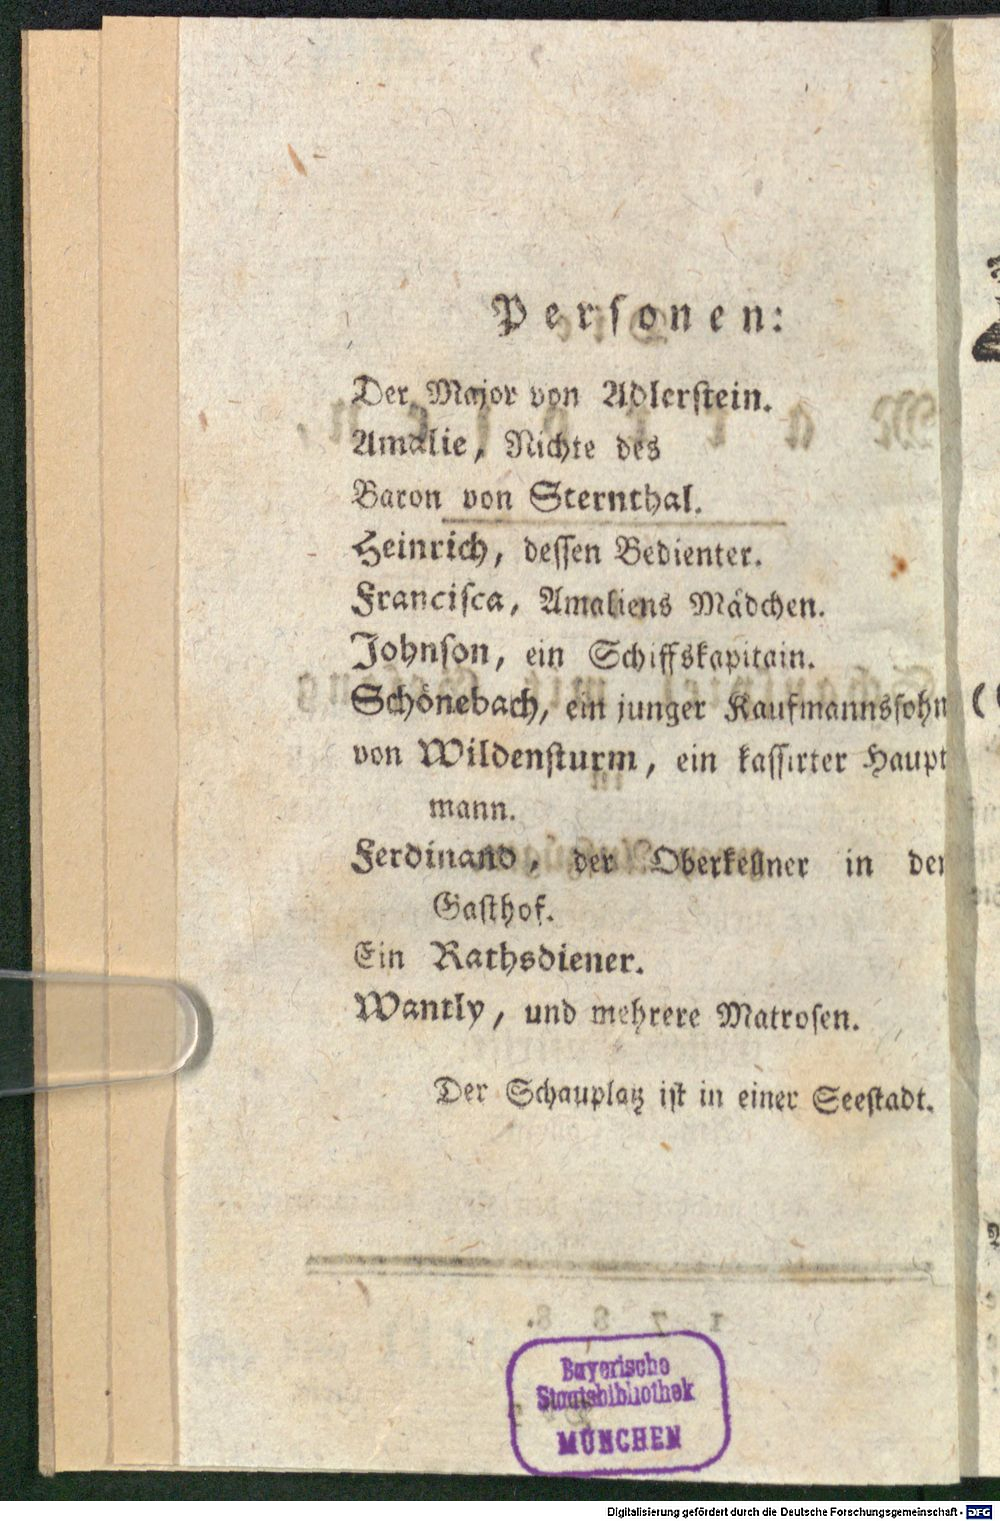 Personen:
Der Major von Adlerstein.
Amalie, Nichte des
Baron von Sternthal.
Heinrich, dessen Bedienter.
Francisca, Amaliens Mädchen.
Johnson, ein Schiffskapitain.
Schönebach, ein junger Kaufmannssohn
von Wildensturm, ein kassirter Haupt
mann.
Ferdinand, der Oberkellner in der
Gasthof.
Ein Rathsdiener.
Wantly, und mehrere Matrosen.
Der Schauplatz ist in einer Seestadt.
Bayerische
Staatsbibliothek
MÜNCHEN
Digitalisierung gefördert durch die Deutsche Forschungsgemeinschaft - DFG